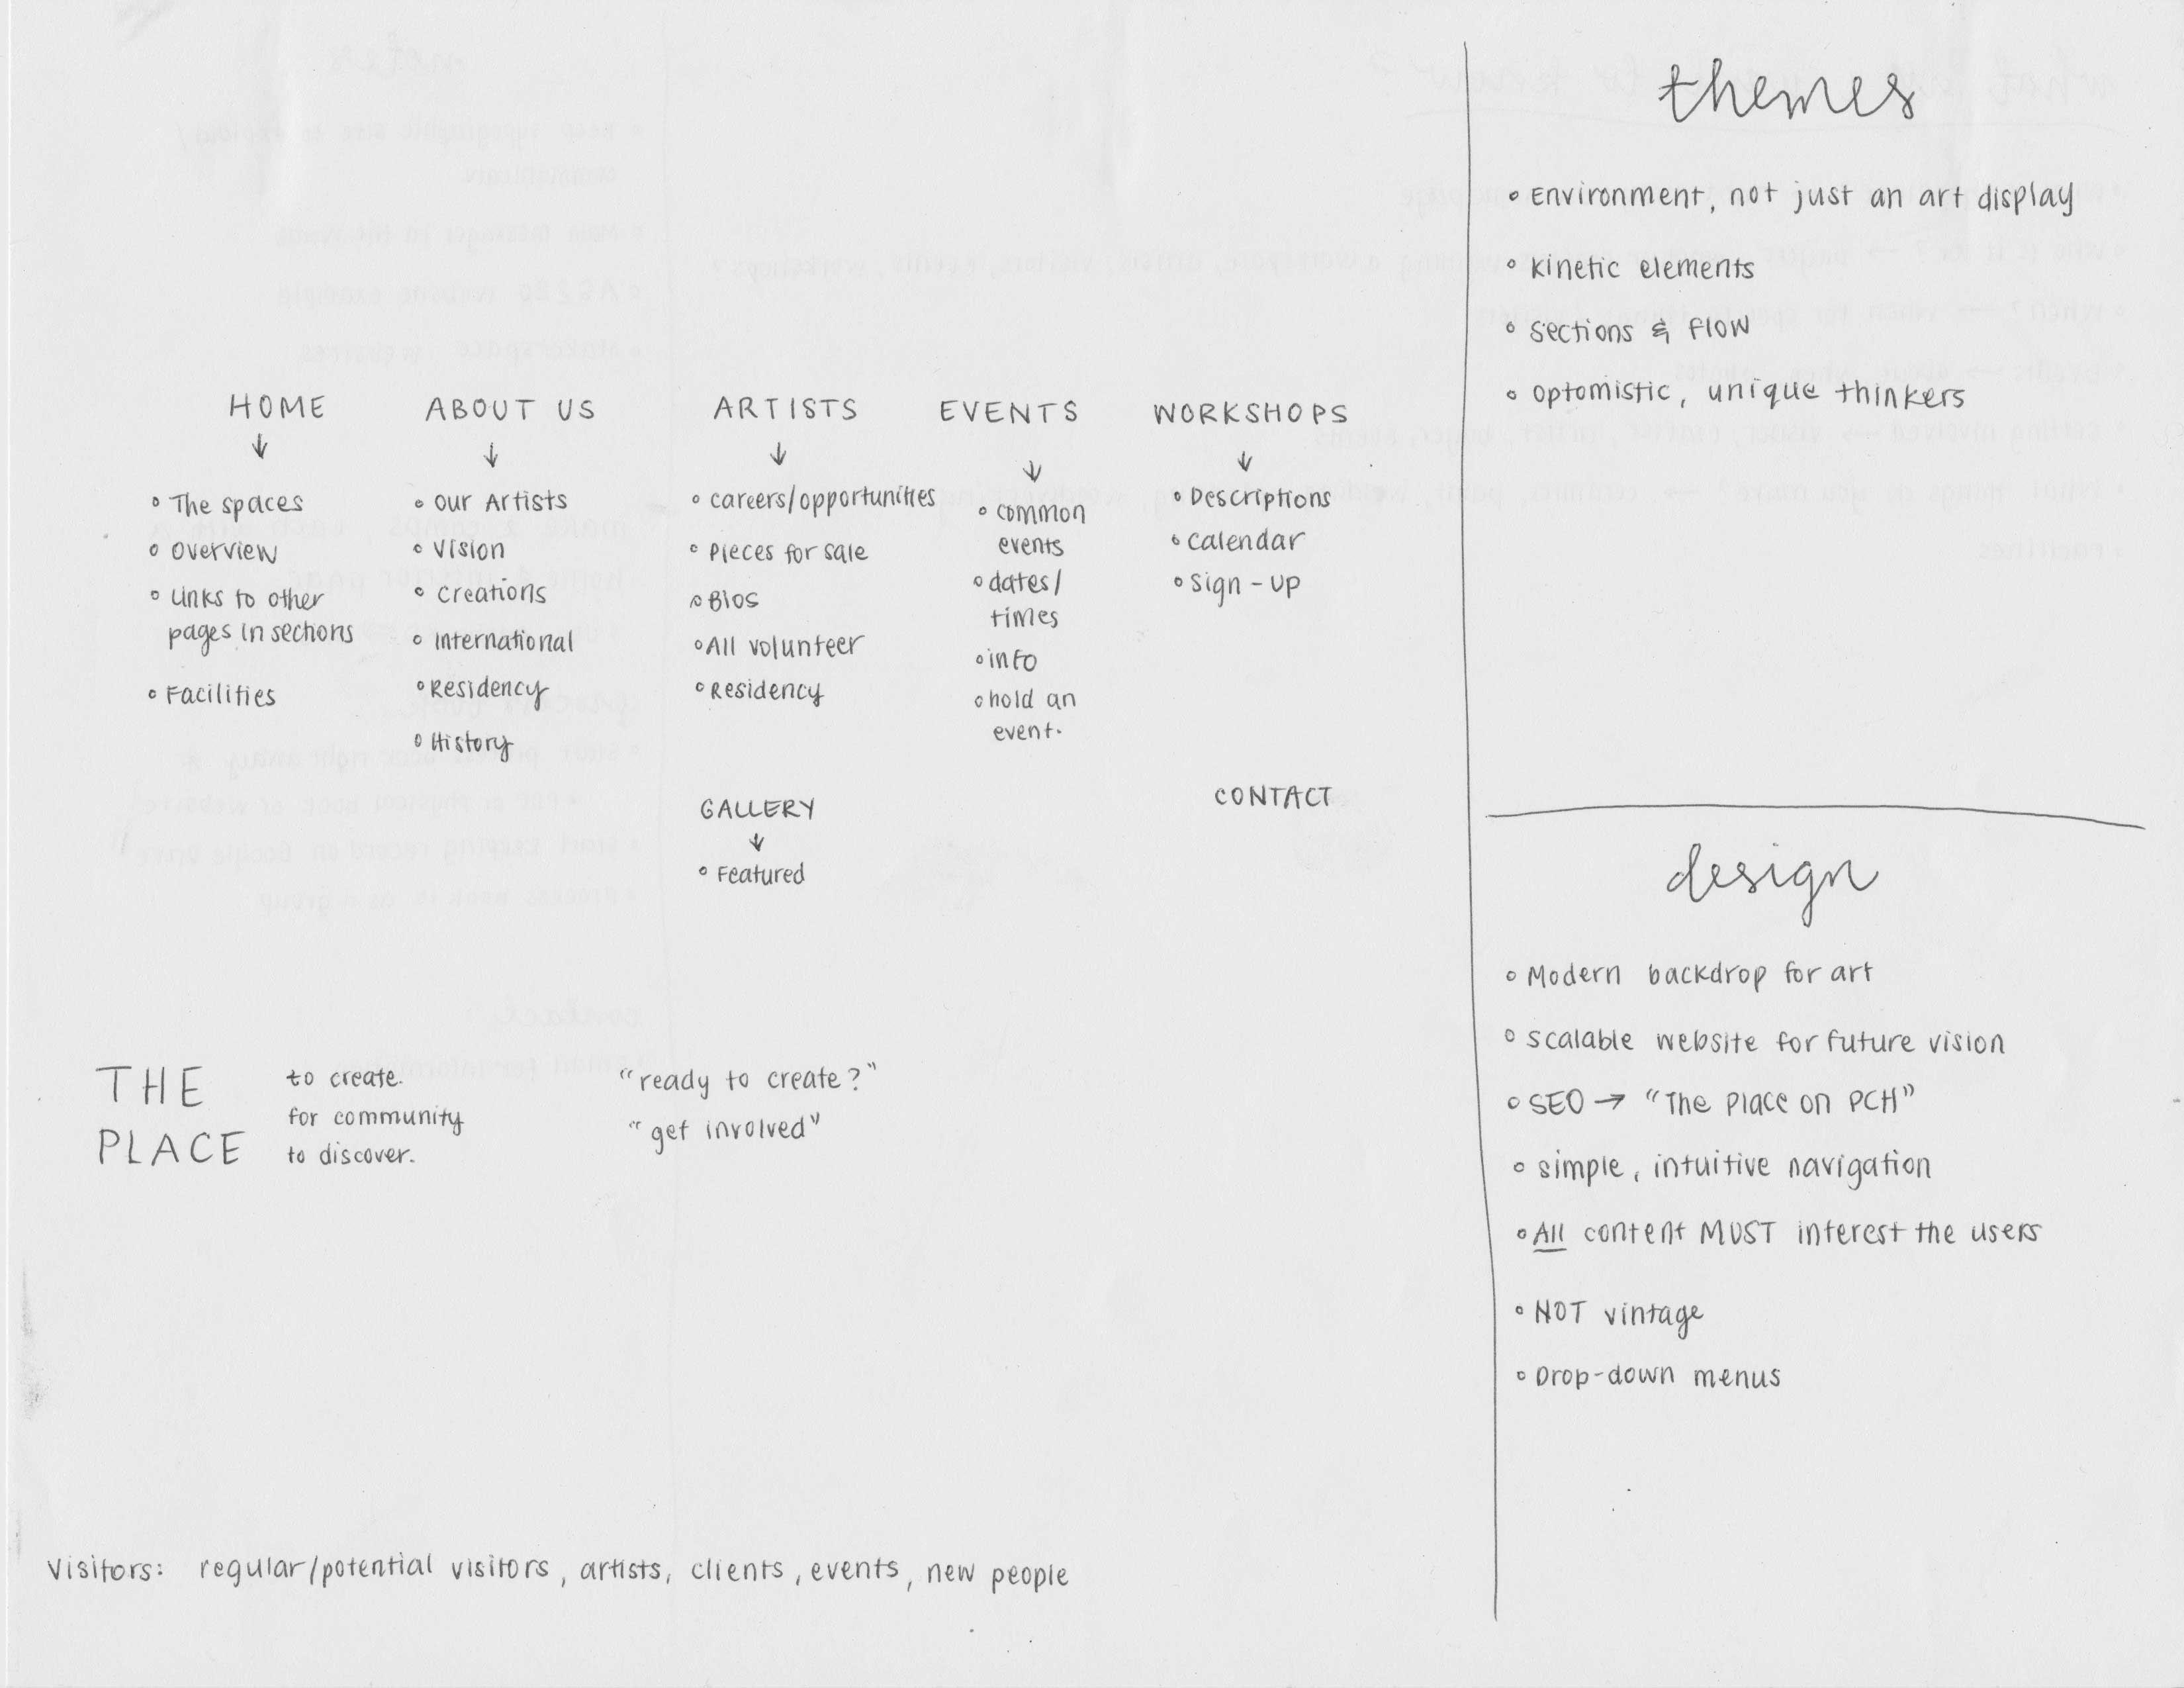 HOME
↓
◦ The spaces
◦ Overview
◦ Links to other
pages in sections
◦ Facilities
ABOUT US
↓
◦ Our Artists
◦ Vision
◦ Creations
◦ International
◦ Residency
◦ History
ARTISTS
↓
◦ careers/opportunities
◦ Pieces for sale
◦ Bios
◦ All volunteer
◦ Residency
EVENTS
↓
◦ common
events
◦ dates/
times
◦ info
◦ hold an
event.
WORKSHOPS
↓
◦ Descriptions
◦ calendar
◦ sign-up
GALLERY
↓
◦ Featured
CONTACT
THE
PLACE
to create.
for community
to discover.
"ready to create?"
"get involved"
Visitors: regular/potential visitors, artists, clients, events, new people
themes
◦ Environment, not just an art display
◦ kinetic elements
◦ sections & flow
◦ optomistic, unique thinkers
design
◦ Modern backdrop for art
◦ scalable website for future vision
◦ SEO → "The Place on PCH"
◦ simple, intuitive navigation
◦ All content MUST interest the users
◦ NOT vintage
◦ Drop-down menus